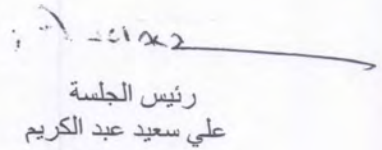 رئيس الجلسة
علي سعيد عبد الكريم